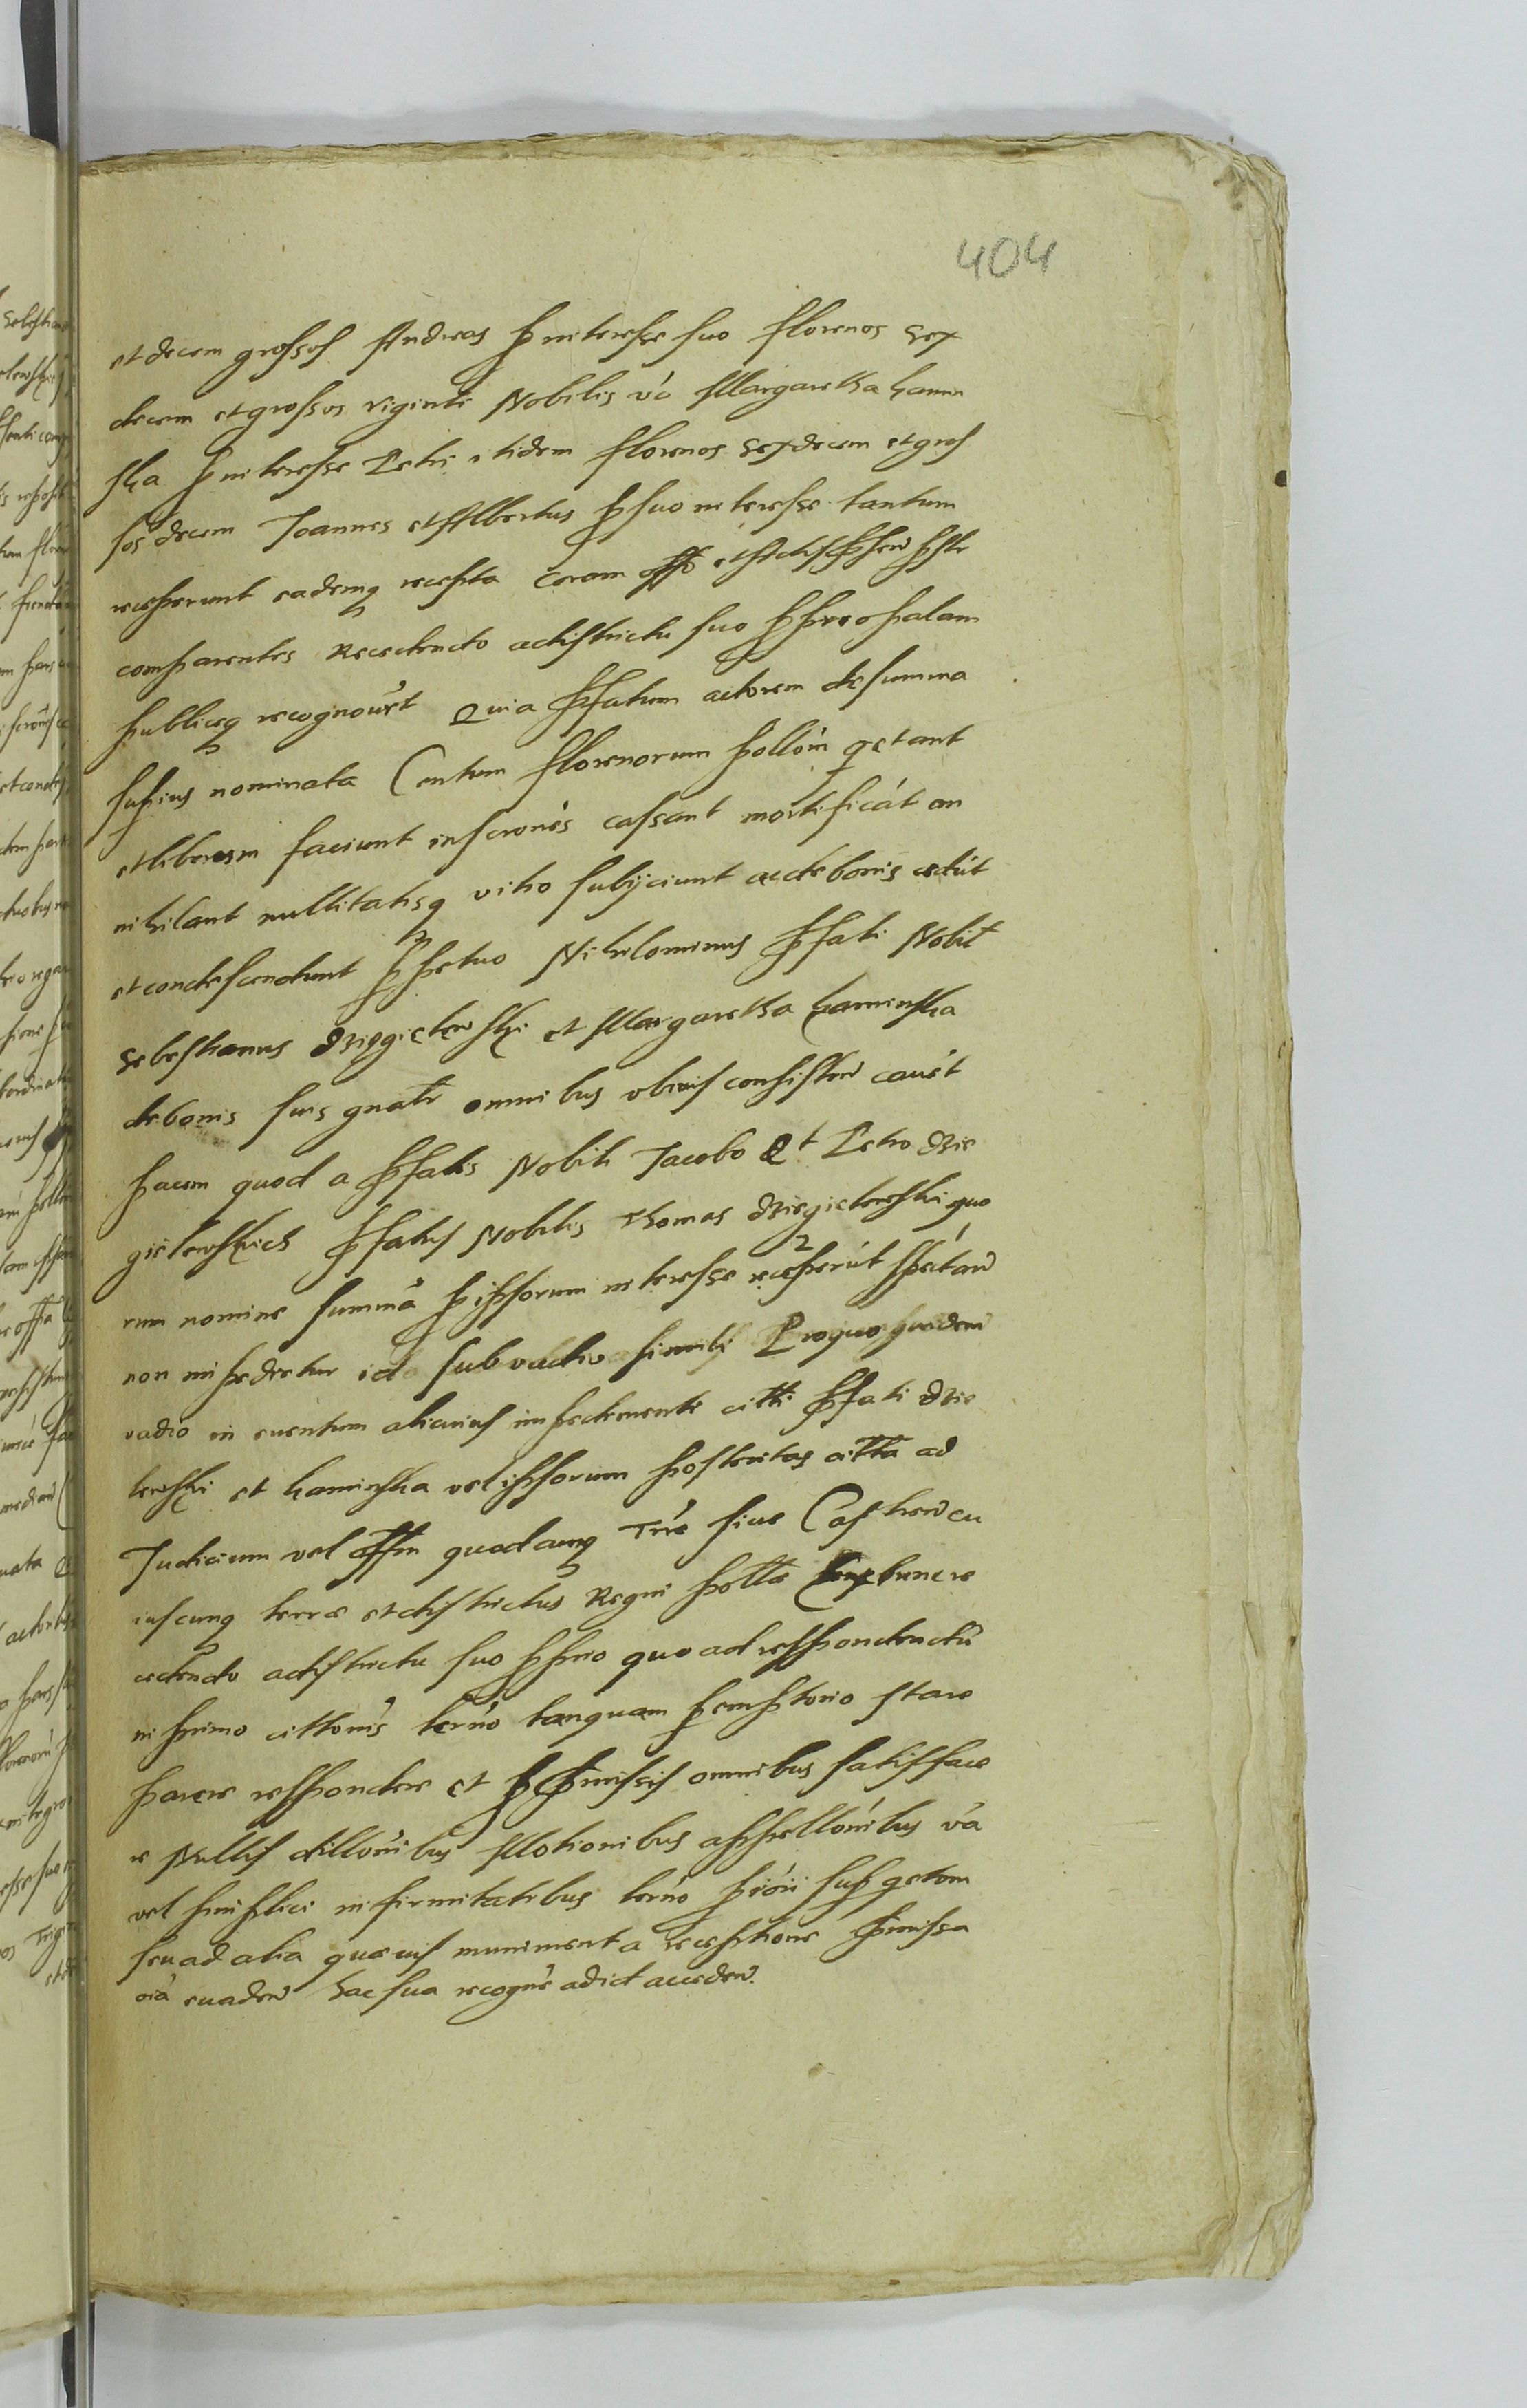 404
et decem grossos Andreas p interesse suo florenos sex
decem et grossos viginti Nobilis vo Margaretha Kamin
ska p interesse Petri itidem florenos sexdecem et gros
sos decem Joannes et Albertus p suo interesse tantum
receperunt eademq recepta coram offo et Actis pntibus pstr
comparentes Recedendo a districtu suo pprio palam
publiceq recognoverut Quia pfatum actorem de summa
supius nominata Centum florenorum pollom qetant
et liberum faciunt inscrones cassant mortificat an
nihilant nullitatisq vitio subijciunt ac de bonis cedut
et condescendunt ppetuo Nihilominus pfati Nobil
Sebestianus Dziegielewski et Margaretha Kaminska
de bonis suis gnalr omnibus ubivis consisten cavet
pacem quod a pfatis Nobili Jacobo Et Petro Dzie
gielewskich pfatis Nobilis Thomas Dziegielewski quo
rum nomine summa p ipsorum interesse receperut spectan
non impedietur id sub vadio simili Pro quo quidem
vadio in eventum alicuius impedimenti citti pfati Dzie
lewski et Kaminska vel ipsorum posteritas citta ad
Judicium vel offm quodcunq Trre sive Castren cu
iuscunq terrae et districtus Regni pollae ex tunc re
cedendo a districtu suo pprio quo ad respondendu
in primo cittonis termo tanquam peremptorio stare
parere respondere et p pmissis omnibus satisface
re Nullis dillonibus Motionibus appellonibus va
vel simplici infirmitatibus termo priori sup qetom
seu ad alia quaevis munimenta receptione pmissa
oia evaden hac sua recogne adid acceden.